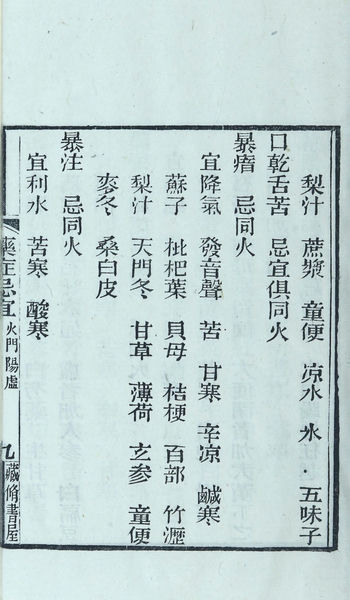 梨汁 蔗漿 童便 凉水 氷 五味子
口乾舌苦 忌宜俱同火
暴瘖 忌同火
宜降氣 發音聲 苦 甘寒 辛凉 鹹寒
蘇子 枇杷葉 貝母 桔梗 百部 竹瀝
梨汁 天門冬 甘草 薄荷 玄參 童便
麥冬 桑白皮
暴注 忌同火
宜利水 苦寒 酸寒
藥症忌宜 火門 陽虛 九 藏脩書屋